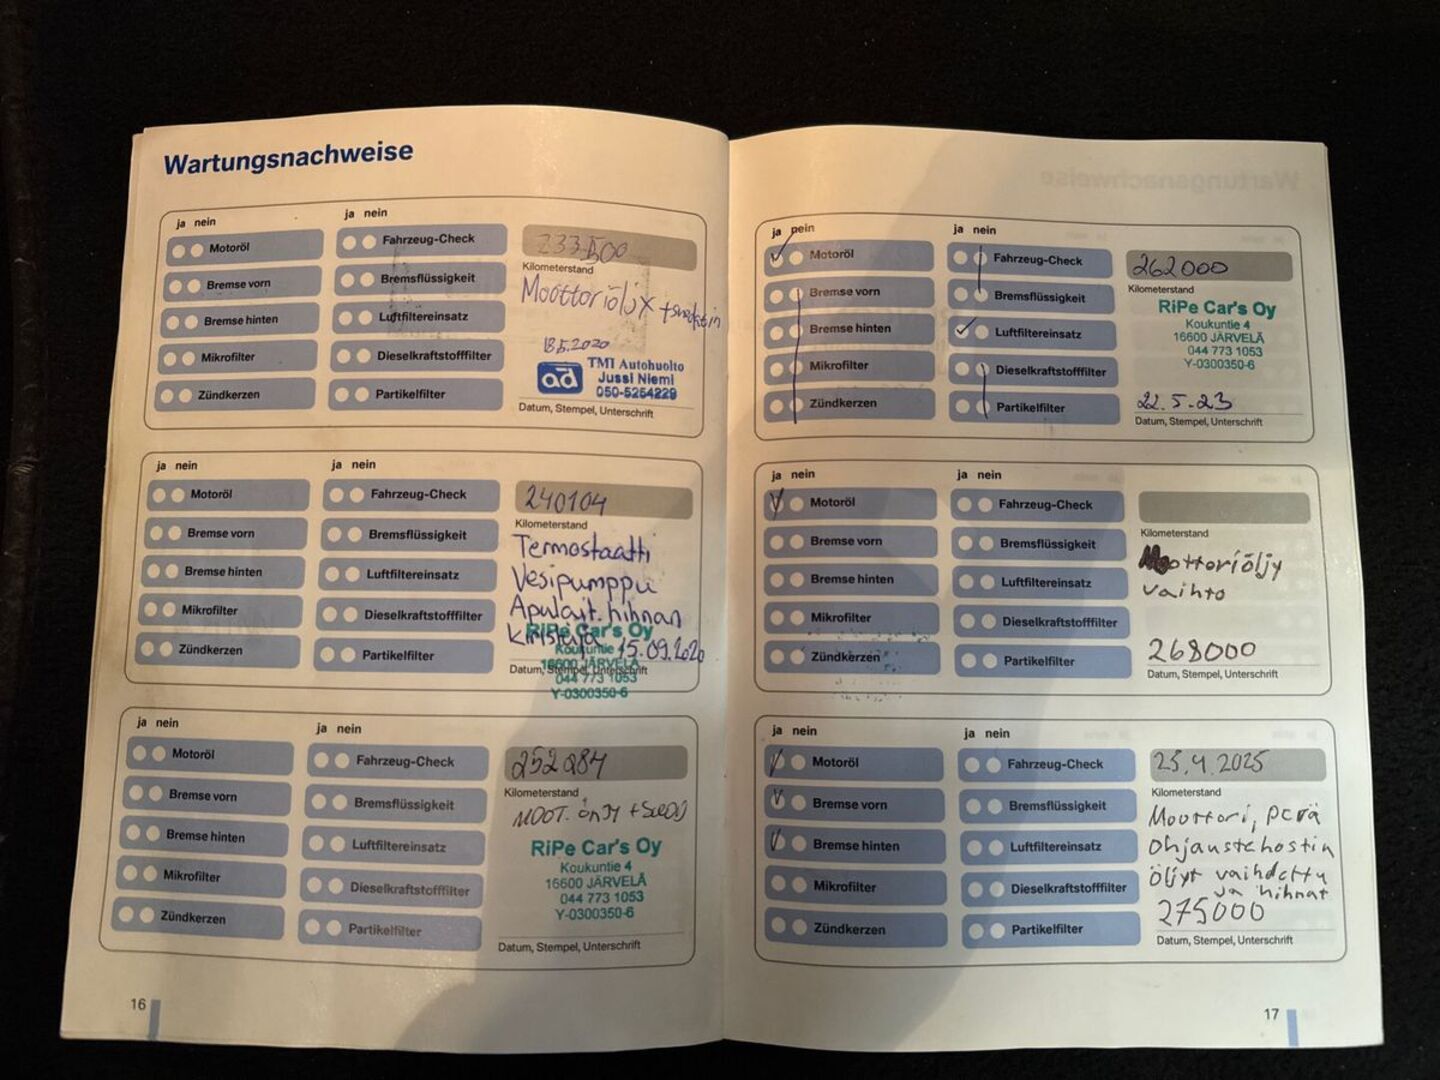 Wartungsnachweise
ja nein
Motoröl
Bremse vorn
Bremse hinten
Mikrofilter
Zündkerzen
ja nein
Fahrzeug-Check
Bremsflüssigkeit
Luftfiltereinsatz
Dieselkraftstofffilter
Partikelfilter
233500
Kilometerstand
Moottoriöljy
TMI Autohuolto
ad Jussi Niemi
050-5264229
Datum, Stempel, Unterschrift
ja nein
Motoröl
Bremse vorn
Bremse hinten
Mikrofilter
Zündkerzen
ja nein
Fahrzeug-Check
Bremsflüssigkeit
Luftfiltereinsatz
Dieselkraftstofffilter
Partikelfilter
240104
Kilometerstand
Termostaatti
Vesipumppu
Apulait. hihnan
Kiristäjä 15.09.2020
RiPe Car's Oy
Koukuntie 4
16600 JÄRVELÄ
044 773 1053
Y-0300350-6
Datum, Stempel, Unterschrift
ja nein
Motoröl
Bremse vorn
Bremse hinten
Mikrofilter
Zündkerzen
ja nein
Fahrzeug-Check
Bremsflüssigkeit
Luftfiltereinsatz
Dieselkraftstofffilter
Partikelfilter
252284
Kilometerstand
MOOT.
RiPe Car's Oy
Koukuntie 4
16600 JÄRVELÄ
044 773 1053
Y-0300350-6
Datum, Stempel, Unterschrift
16
ja nein
Motoröl
Bremse vorn
Bremse hinten
Mikrofilter
Zündkerzen
ja nein
Fahrzeug-Check
Bremsflüssigkeit
Luftfiltereinsatz
Dieselkraftstofffilter
Partikelfilter
262000
Kilometerstand
RiPe Car's Oy
Koukuntie 4
16600 JÄRVELÄ
044 773 1053
Y-0300350-6
22.5.23
Datum, Stempel, Unterschrift
ja nein
Motoröl
Bremse vorn
Bremse hinten
Mikrofilter
Zündkerzen
ja nein
Fahrzeug-Check
Bremsflüssigkeit
Luftfiltereinsatz
Dieselkraftstofffilter
Partikelfilter
Kilometerstand
Moottoriöljy
vaihto
268000
Datum, Stempel, Unterschrift
ja nein
Motoröl
Bremse vorn
Bremse hinten
Mikrofilter
Zündkerzen
ja nein
Fahrzeug-Check
Bremsflüssigkeit
Luftfiltereinsatz
Dieselkraftstofffilter
Partikelfilter
23.4.2025
Kilometerstand
Moottori, perä
Ohjaustehostin
öljyt vaihdettu
ja hihnat
275000
Datum, Stempel, Unterschrift
17